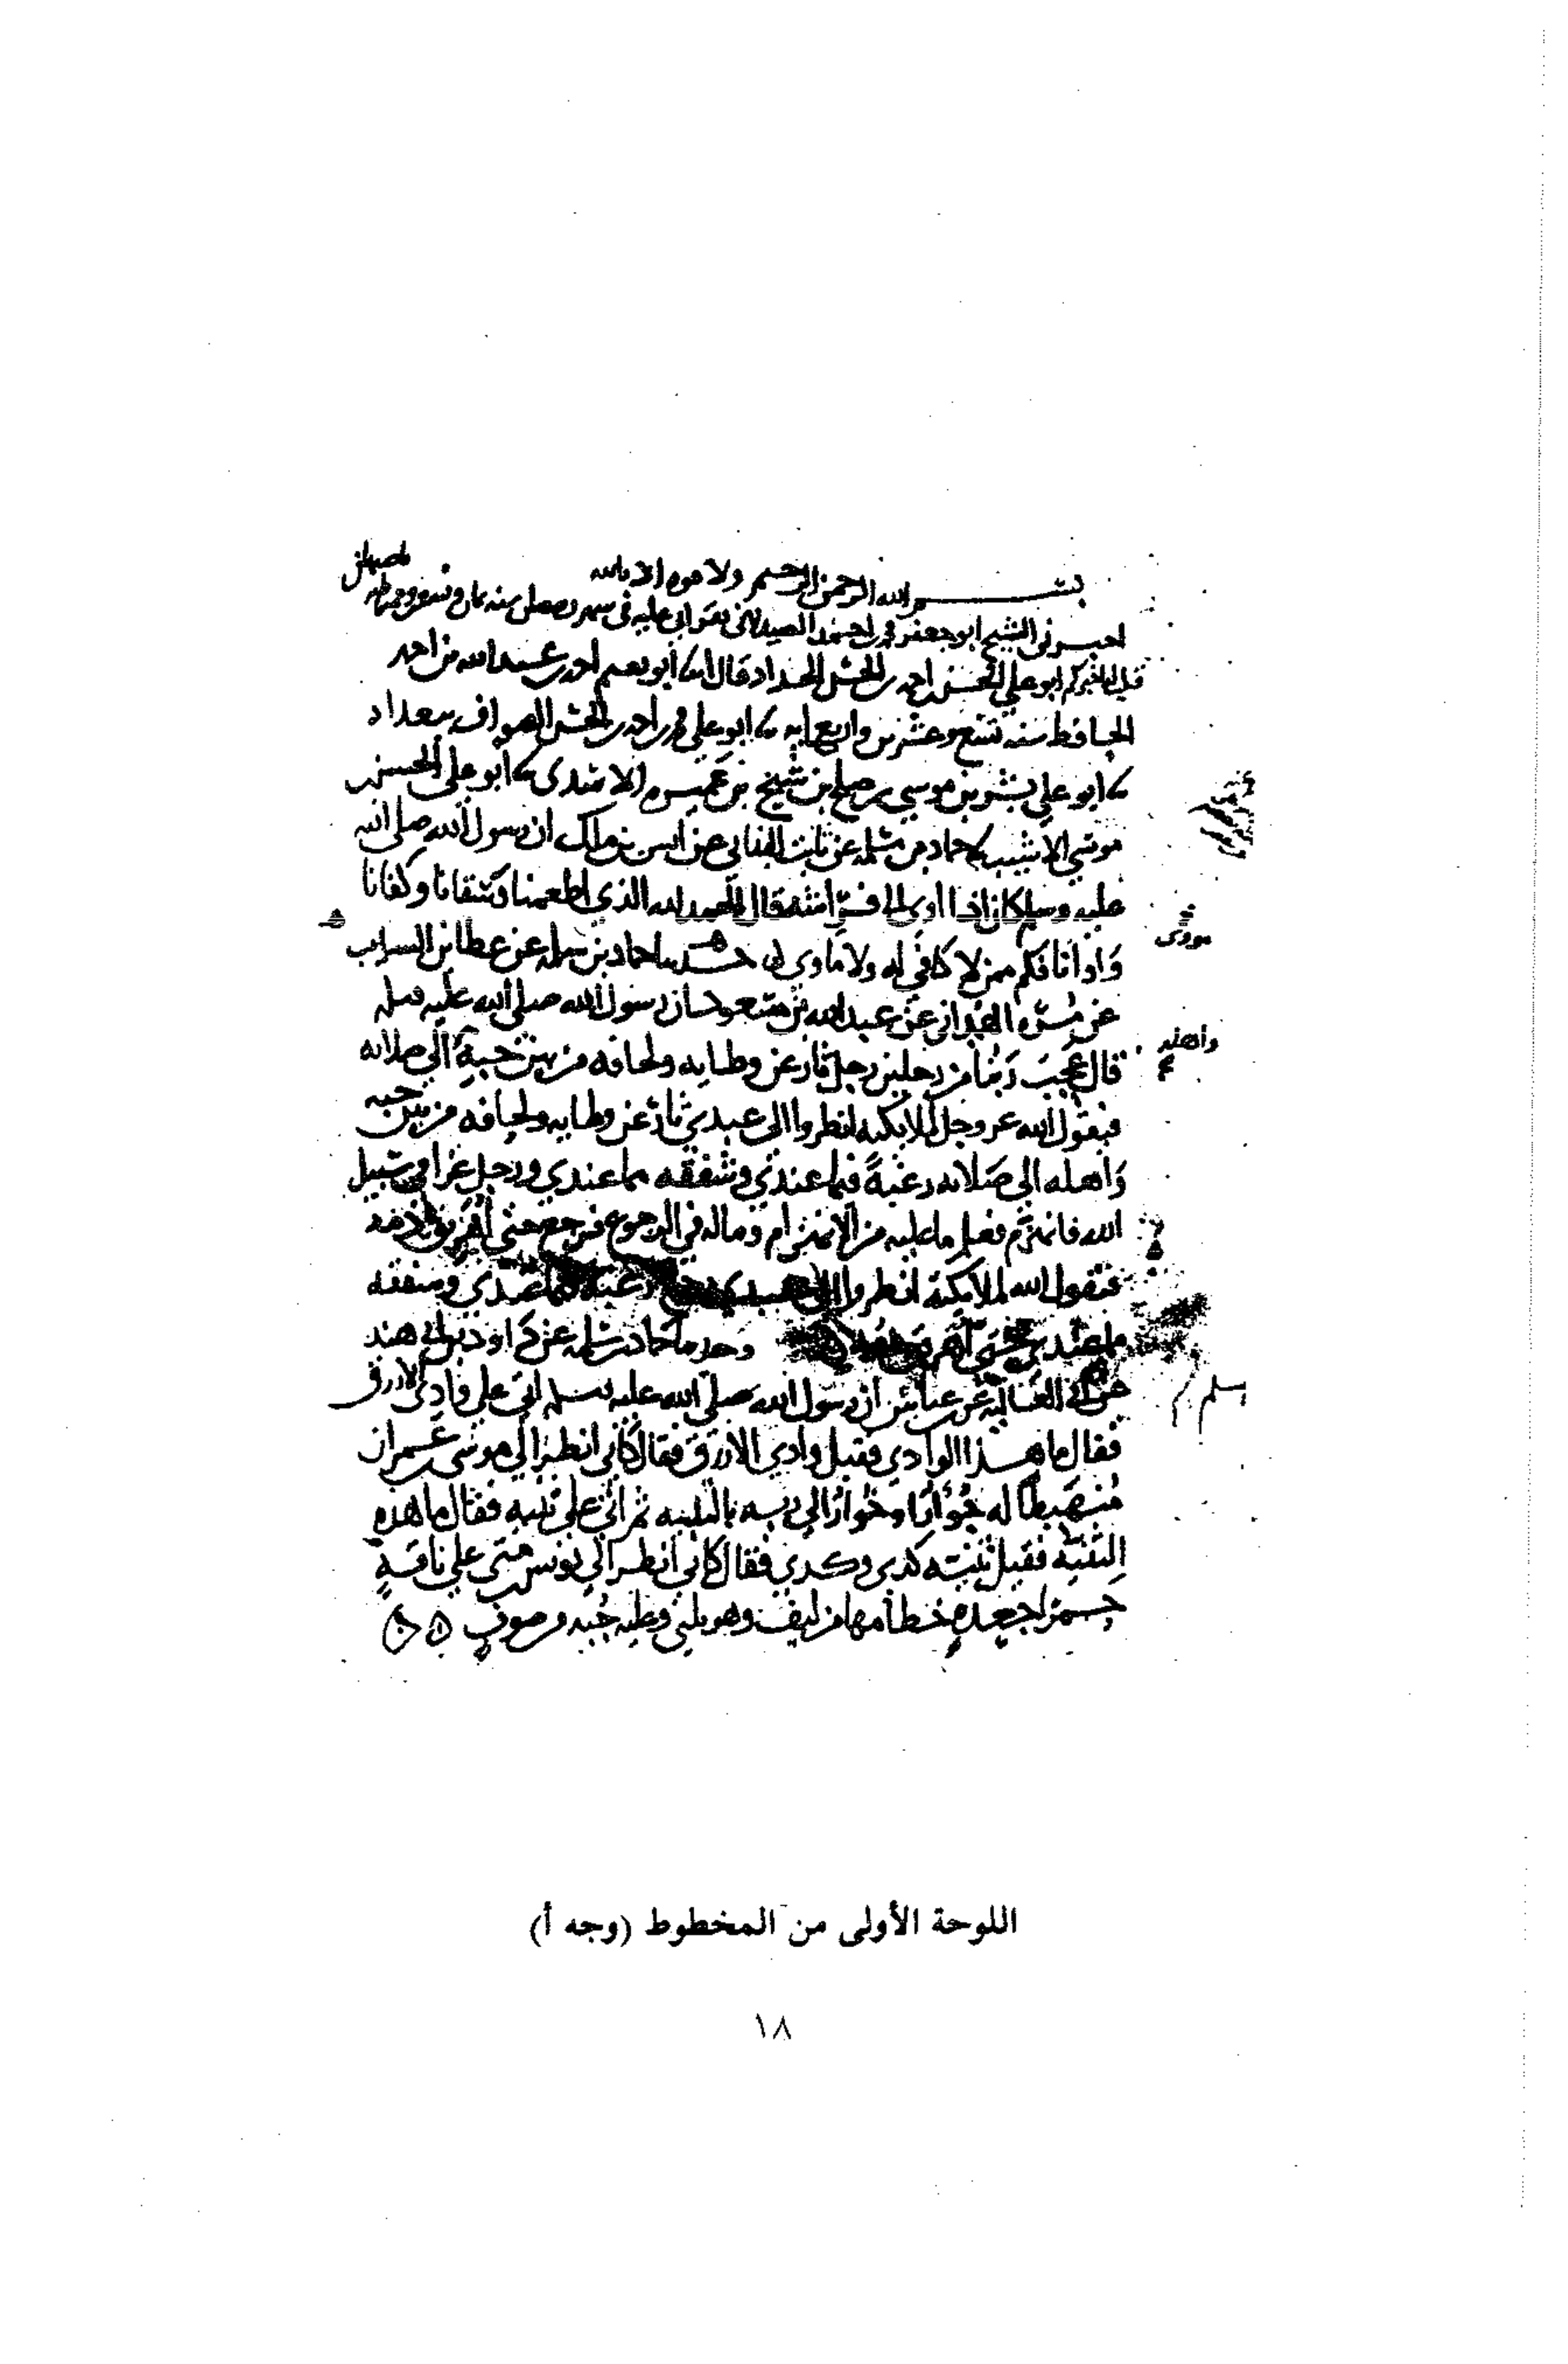 بسم الله الرحمن الرحيم ولا قوة الا بالله
اخبرنا الشيخ ابو جعفر محمد بن احمد الصيدلاني بقراءتي عليه في سنة ثمان وتسعين باصبهان
قيل له اخبركم ابو علي الحسن بن احمد بن الحسن الحداد قال ابنا ابو نعيم احمد بن عبد الله بن احمد
الحافظ سنة تسع وعشرين واربع مايه ثنا ابو علي محمد بن احمد بن الحسن الصواف ببغداد
ثنا ابو علي بشر بن موسى بن صلح بن شيخ بن عميره الاسدي ثنا ابو علي الحسن بن
موسى الاشيب ثنا حماد بن سلمه عن ثابت البناني عن انس بن ملك ان رسول الله صلى الله
عليه وسلم كان اذا اوى الى فراشه قال الحمد لله الذي اطعمنا وسقانا وكفانا
واوانا فكم ممن لا كافي له ولا ماوى له حدثنا حماد بن سلمه عن عطا بن السايب
عن مره الهمداني عن عبد الله بن مسعود ان رسول الله صلى الله عليه وسلم
قال عجب ربنا من رجلين رجل ثار عن وطايه ولحافه من بين حبه الى صلاته
واهله
فيقول الله عز وجل لملايكته انظروا الى عبدي ثار عن وطايه ولحافه من بين حبه
واهله الى صلاته رغبة فيما عندي وشفقه مما عندي ورجل غزا في سبيل
الله فانهزم فعلم ما عليه من الانهزام وماله في الرجوع فرجع حتى اهريق دمه
فيقول الله لملايكته انظروا الى عبدي رجع رغبة فيما عندي وشفقه
مما عندي حتى اهريق دمه وحدثنا حماد بن سلمه عن داود بن ابي هند
عن ابي العاليه عن ابن عباس ان رسول الله صلى الله عليه وسلم اتى على وادي الازرق
فقال ما هذا الوادي فقيل وادي الازرق فقال كاني انظر الى موسى بن عمران
منهبطا له جؤار الى ربه بالتلبيه ثم اتى على ثنيه فقال ما هذه
الثنيه فقيل ثنيه كدى وكدي فقال كاني انظر الى يونس بن متى على ناقة
حمرا جعده خطامها من ليف وهو يلبي وعليه جبه من صوف
اللوحة الأولى من المخطوط (وجه أ)
١٨